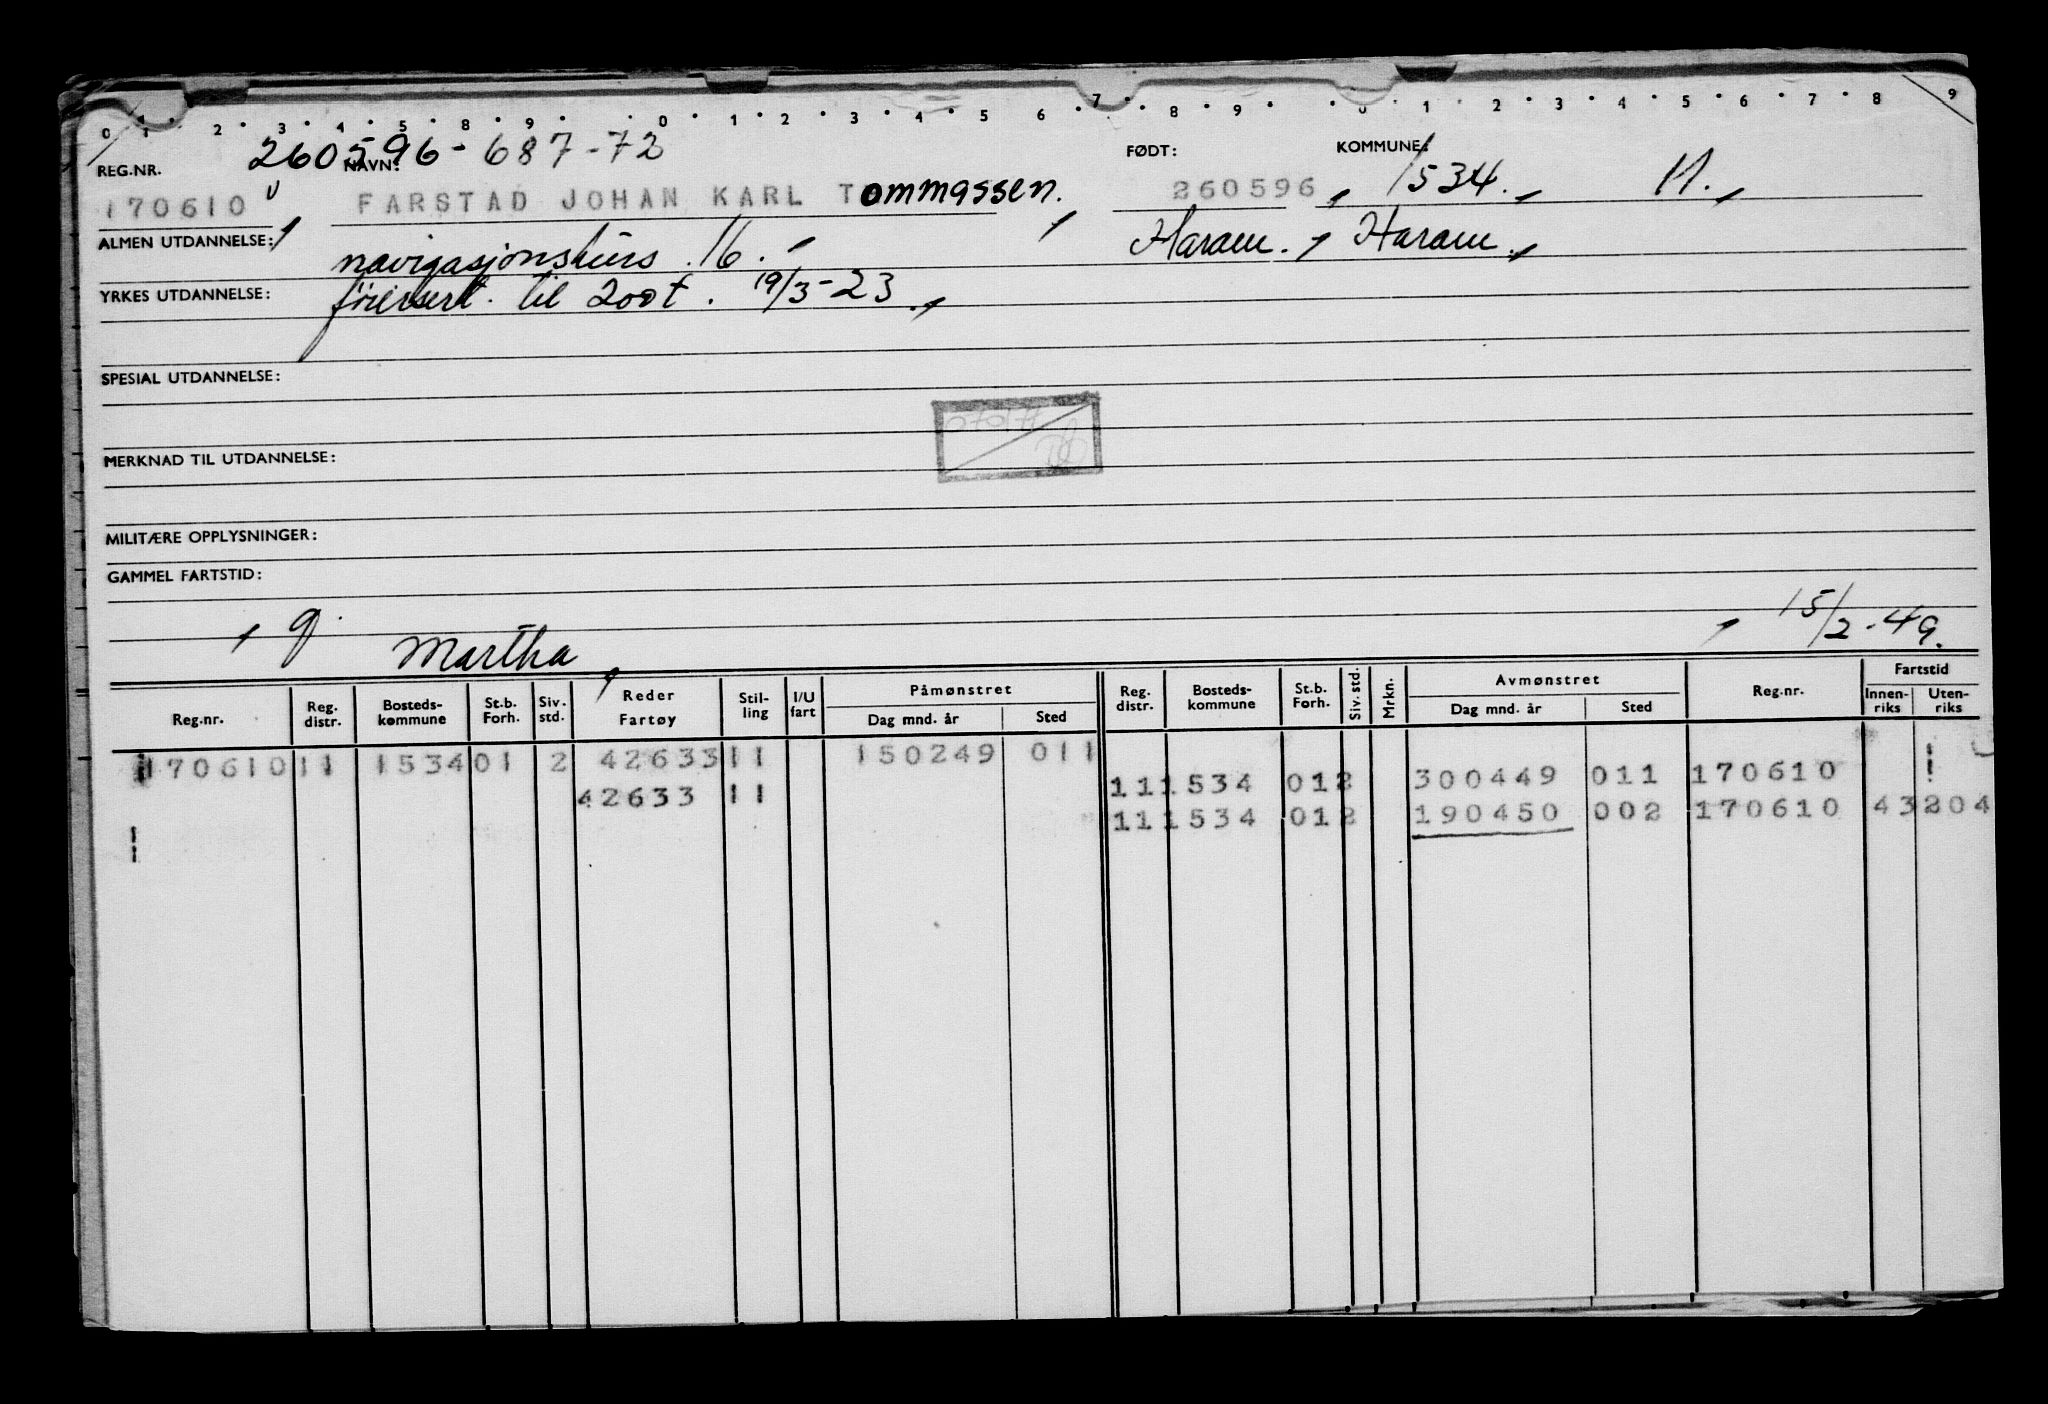 0 1 2 3 4 5 8 9 0 1 2 3 4 5 6 7 8 9 0 1 2 3 4 5 6 7 8 9
260596-687-72
REG.NR. NAVN: FØDT: KOMMUNE:
170610 FARSTAD JOHAN KARL Tommassen. 260596 1534. 11.
ALMEN UTDANNELSE: Haram. Haram.
navigasjonskurs. 16.
YRKES UTDANNELSE: førersert. til 200t. 19/3-23
SPESIAL UTDANNELSE:
MERKNAD TIL UTDANNELSE:
MILITÆRE OPPLYSNINGER:
GAMMEL FARTSTID:
g. Martha 15/2-49.
Reg.nr. Reg. distr. Bosteds- kommune St.b. Forh. Siv. std. Reder Fartøy Stil- ling I/U fart Påmønstret Dag mnd. år Sted Reg. distr. Bosteds- kommune St.b. Forh. Siv. std. Mrkn. Avmønstret Dag mnd. år Sted Reg.nr. Fartstid Innen- riks Uten- riks
170610 11 1534 01 2 42633 11 150249 011
42633 11 11 1534 01 2 300449 011 170610
11 1534 01 2 190450 002 170610 43 204